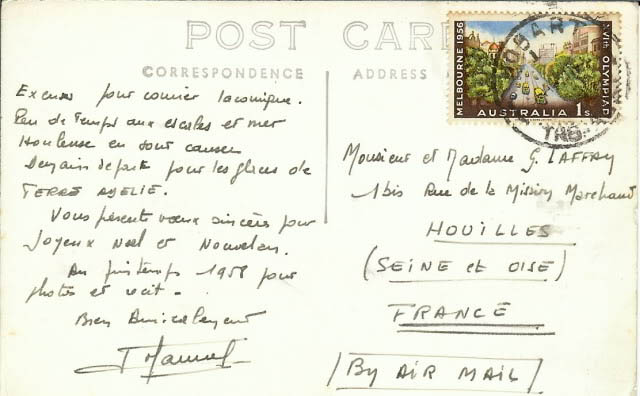 POST CARD
CORRESPONDENCE
ADDRESS
MELBOURNE 1956
XVIth OLYMPIAD
AUSTRALIA 1s
HOBART
TAS
Excuses pour courrier laconique.
Peu de temps aux escales et mer
Houleuse en sont causes
Demain départ pour les glaces de
TERRE ADELIE.
Vous présente voeux sincères pour
Joyeux Noel et Nouvel an.
Au printemps 1958 pour
photos et récit.
Bien Amicalement
Monsieur et Madame G. LAFFAY
1bis Rue de la Mission Marchand
HOUILLES
(SEINE et OISE)
FRANCE
By AIR MAIL